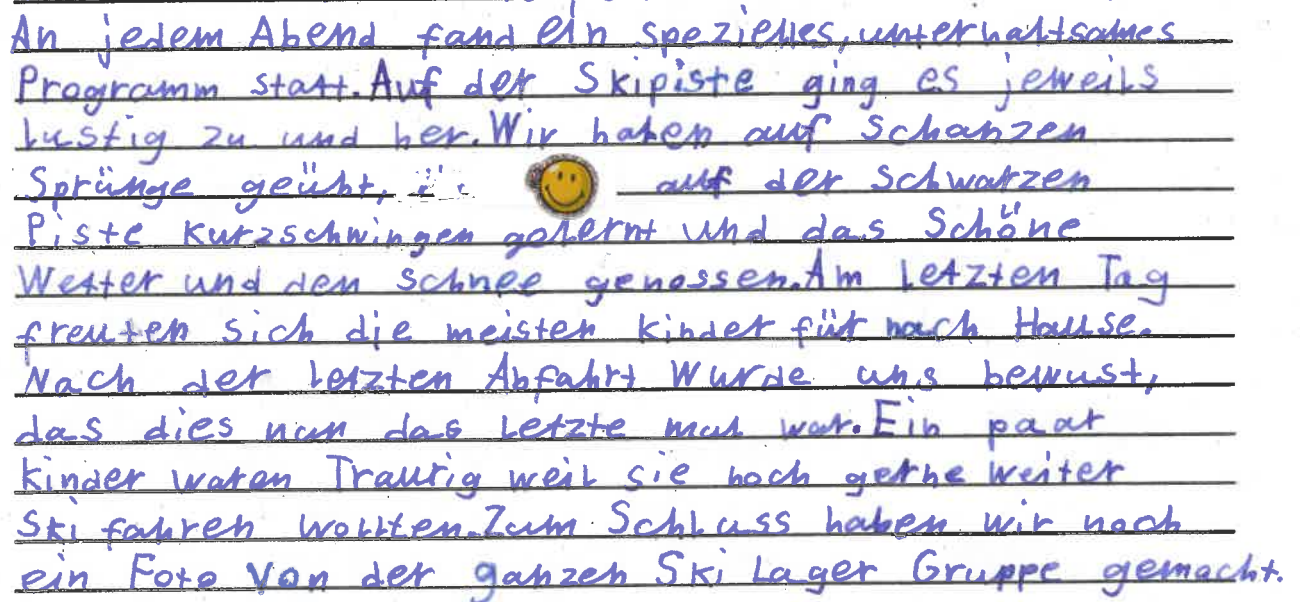 An jedem Abend fand ein spezielles, unterhaltsames
Programm statt. Auf der Skipiste ging es jeweils
lustig zu und her. Wir haben auf Schanzen
Sprünge geübt, auf der schwarzen
Piste kurzschwingen gelernt und das Schöne
Wetter und den Schnee genossen. Am letzten Tag
freuten sich die meisten kinder für nach Hause.
Nach der letzten Abfahrt wurde uns bewust,
das dies nun das Letzte mal war. Ein paar
kinder waren Traurig weil sie noch gerne weiter
Ski fahren wollten. Zum Schluss haben wir noch
ein Foto von der ganzen Ski Lager Gruppe gemacht.